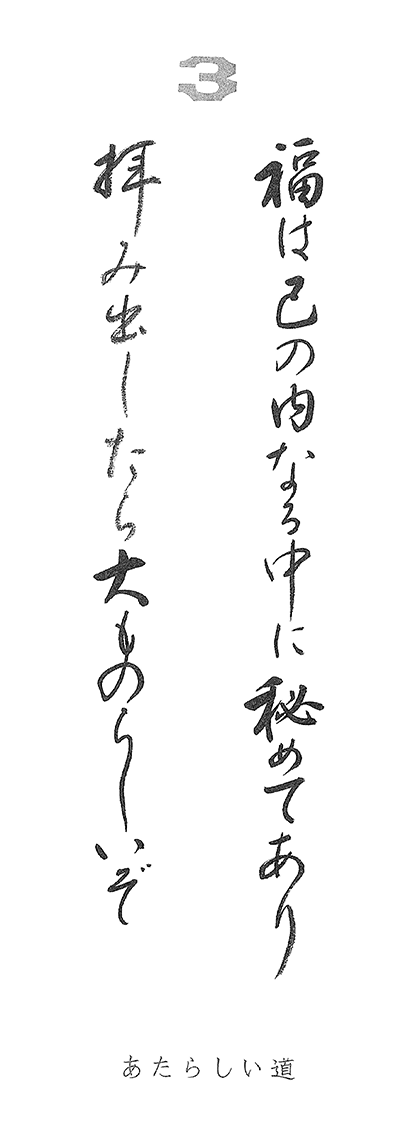 3
福は己の内なる中に秘めてあり
拝み出したら大ものらしいぞ
あたらしい道